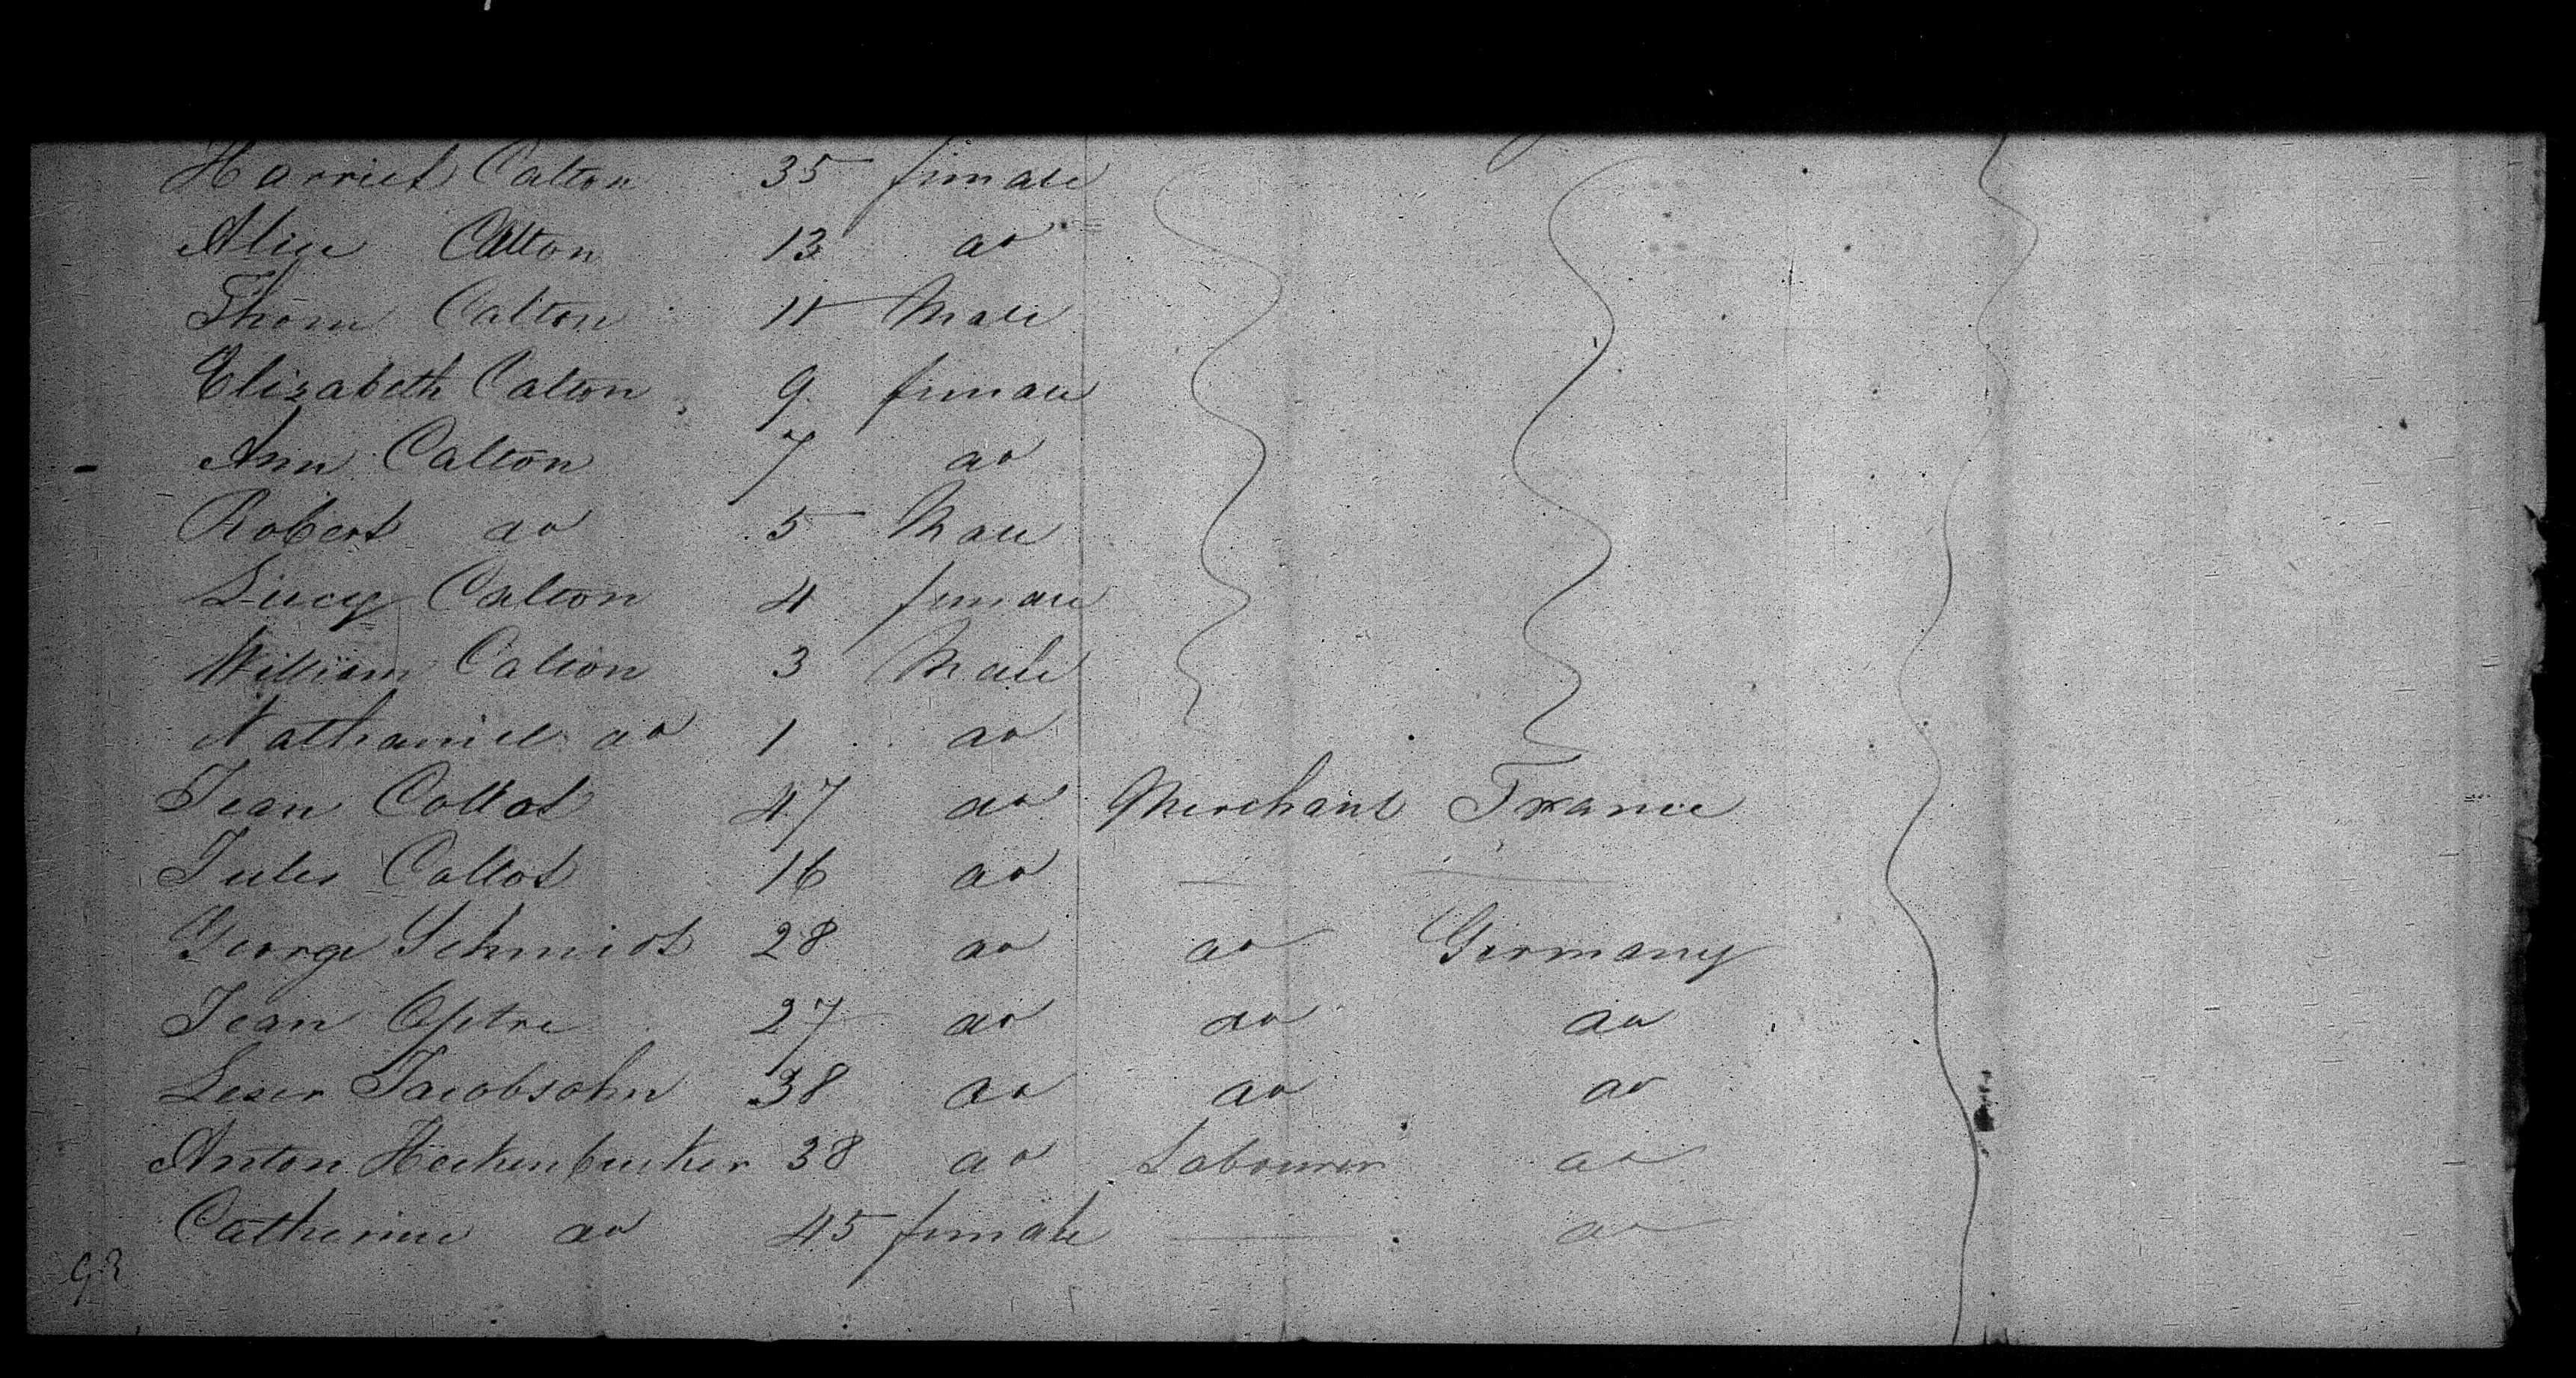 Harriet Calton 35 female
Alice Calton 13 do
Thom Calton 11 Male
Elizabeth Calton 9 female
Ann Calton 7 do
Robert do 5 Male
Lucy Calton 4 female
William Calton 3 Male
Nathaniel do 1 do
Jean Collot 47 do Merchant France
Jules Collot 16 do
George Schmidt 28 do do Germany
Jean 27 do do do
Leser Jacobsohn 38 do do do
Anton 38 do Labourer do
Catherine do 45 female do